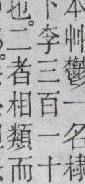 本艸鬱一名棣
下李三百一十
也。二者相類而